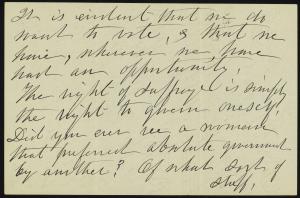 It is evident that we do
want to vote, & that we
have, wherever we have
had an opportunity.
The right of suffrage is simply
the right to govern oneself.
Did you ever see a woman
that preferred absolute government
by another? Of what sort of
stuff,